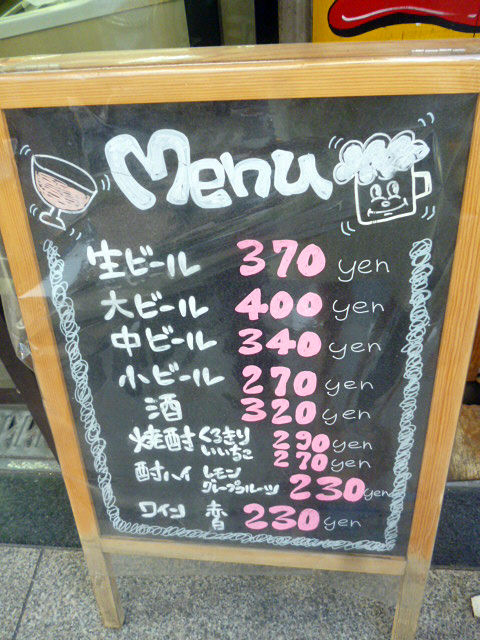 Menu
生ビール 370 yen
大ビール 400 yen
中ビール 340 yen
小ビール 270 yen
酒 320 yen
焼酎 くろきり 290 yen
いいちこ 270 yen
酎ハイ レモン
グレープフルーツ 230 yen
ワイン 赤
白 230 yen